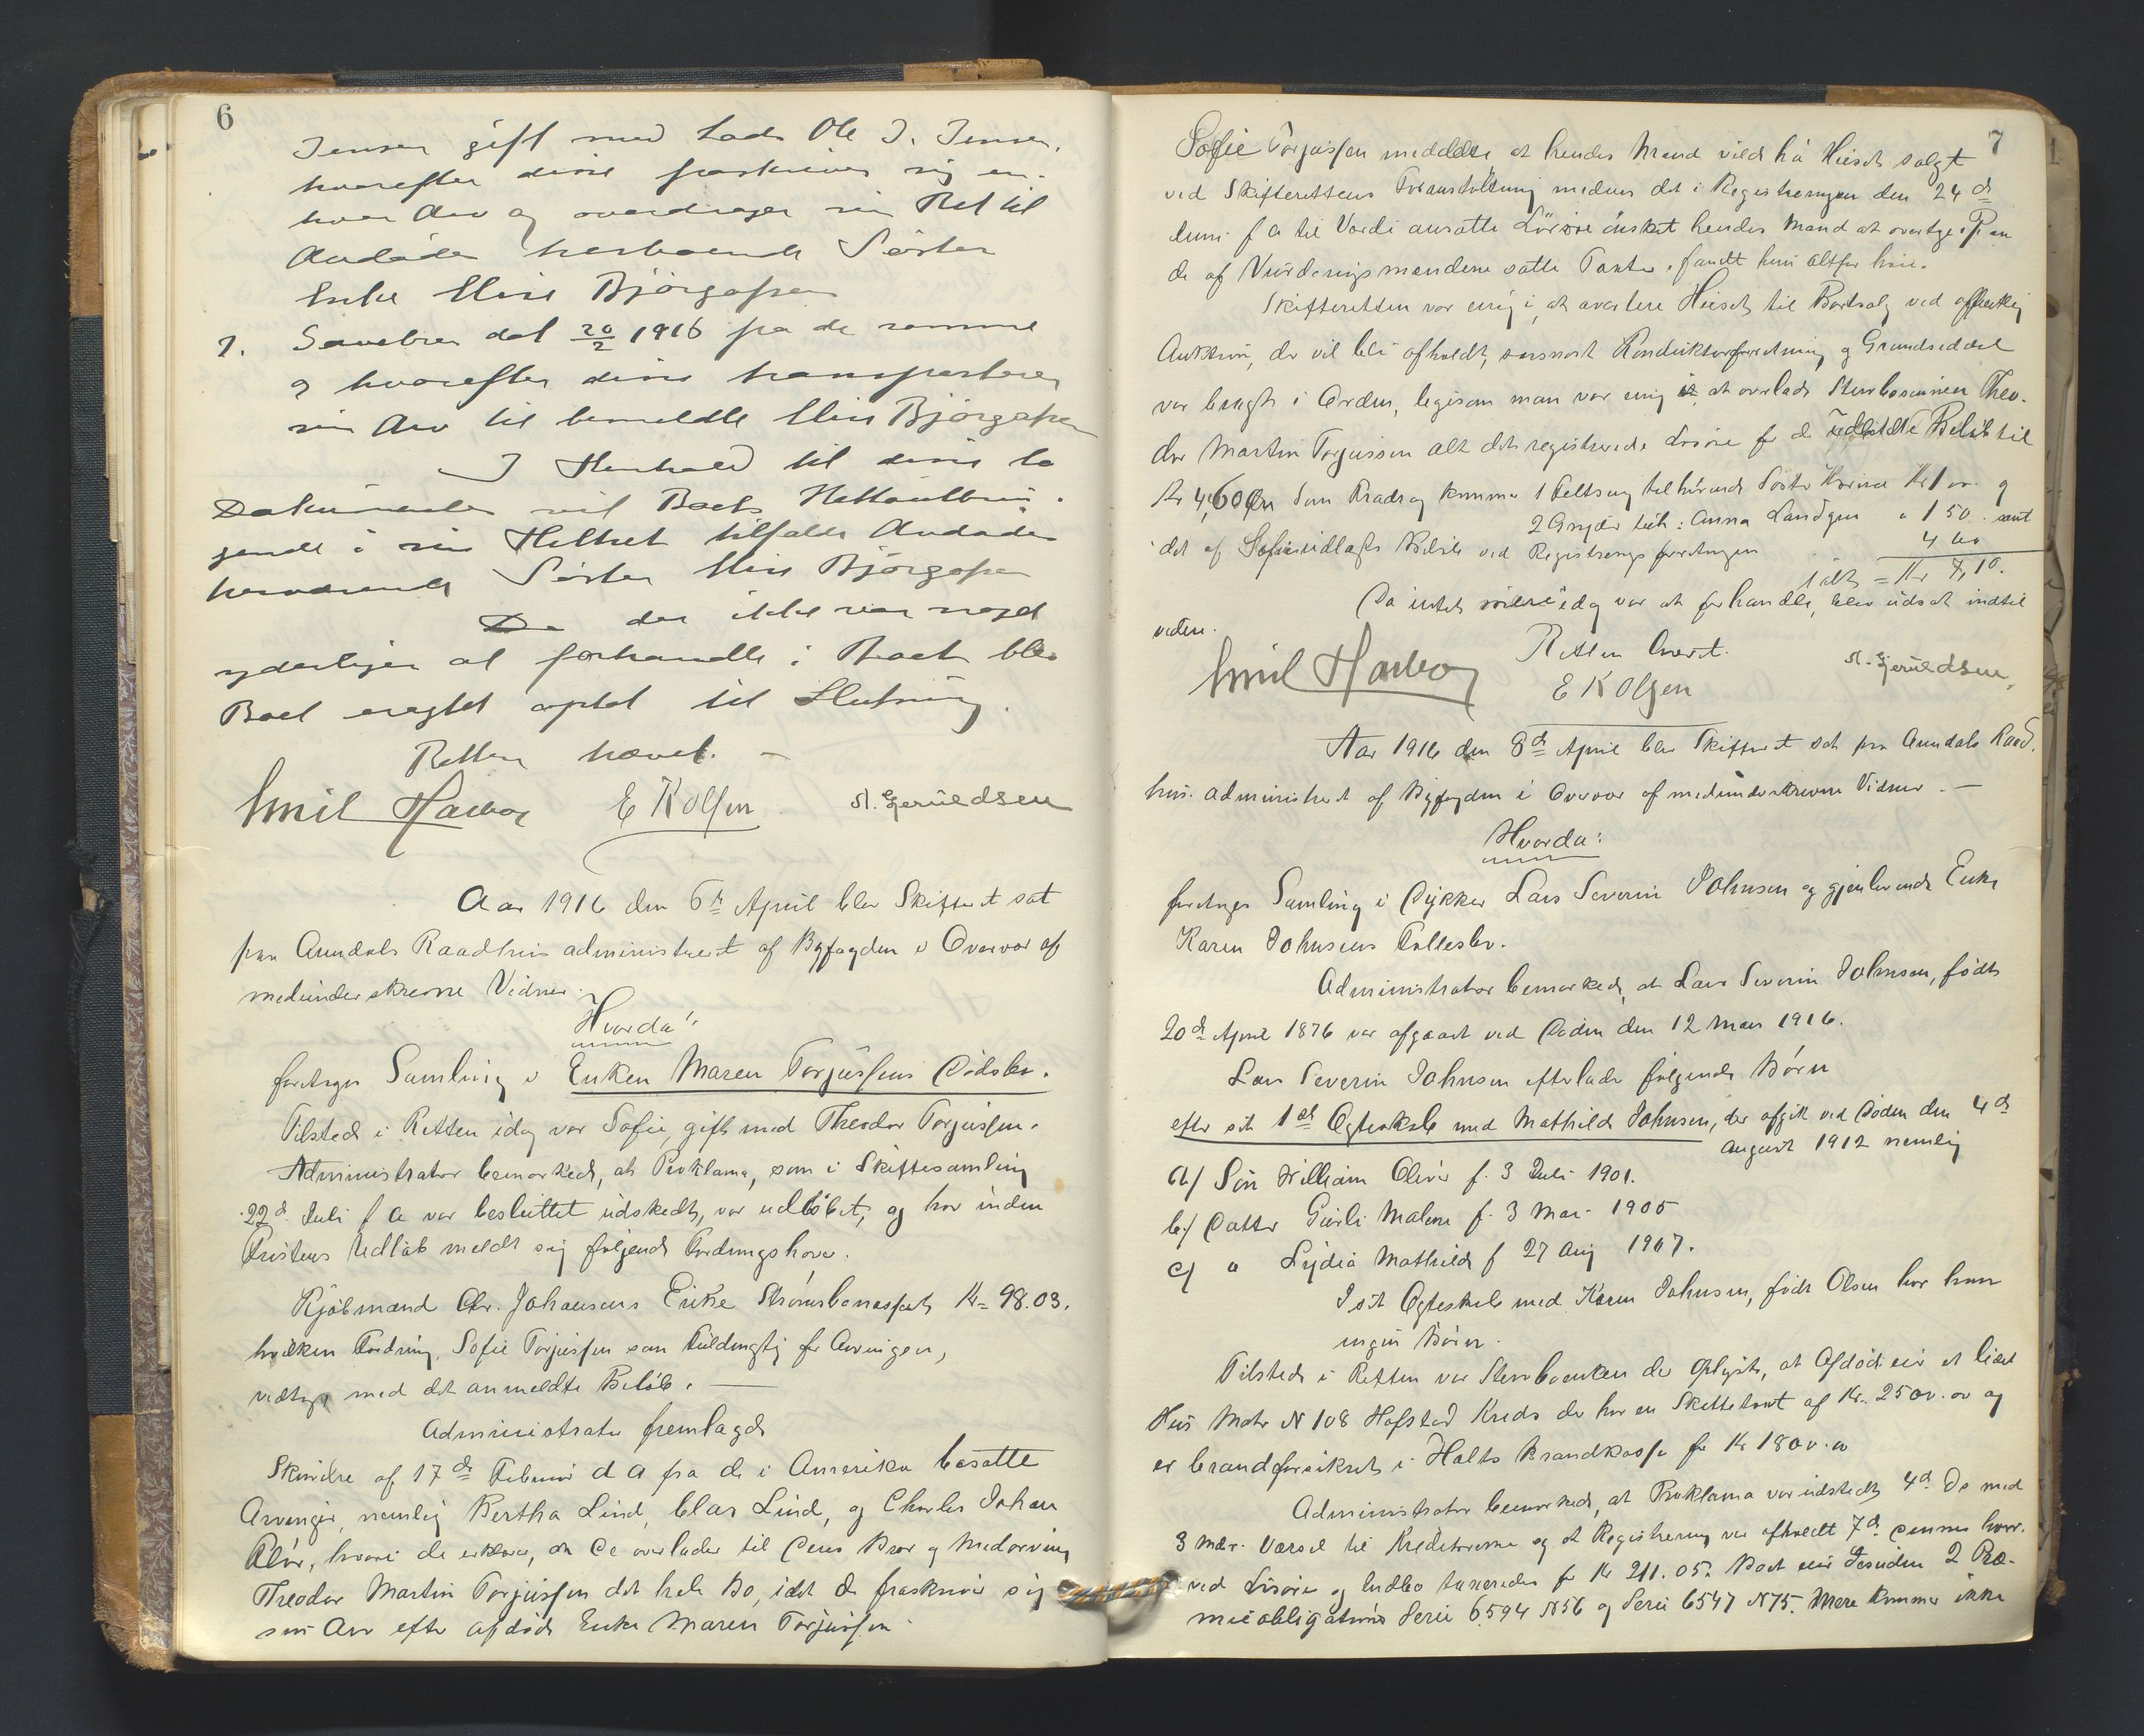 6
Jensen gift med Lods Ole J. Jensen,
hvorefter disse fraskriver sig en-
hver Arv og overdrager sin Ret til
Avdødes herboende Søster
Enke Elise Bjørgessen
2. Samebrev dat 20/2 1916 fra de samme
og hvorefter disse transporterer
sin Arv til bemeldte Elise Bjørgessen
I Henhold til disse to
Dokumenter vil Boets Nettoutbrin-
gende i sin Helhet tilfalde Avdødes
herværende Søster Elise Bjørgessen
Da der ikke var noget
yderligere at forhandle i Boet blev
Boet eragtet optat til Slutning.
Retten hævet. —
Emil Harboe E K Olsen N. Gjeruldsen
Aar 1916 den 6te April blev Skifteret sat
paa Arendals Raadhus administreret af Byfogden i Overvær af
medunderskrevne Vidner.
Hvorda:
foretoges Samling i Enken Maren Torjussens Dødsbo.
Tilstede i Retten idag var Sofie, gift med Theodor Torjussen.
Administrator bemærkede, at Proklama, som i Skiftesamling
22de Juli f A var besluttet udstedt, var udløbet, og har inden
Fristens Udløb meldt sig følgende Fordringshaver.
Kjøbmand Chr. Johansens Enke Strømsbonesset Kr 98.03.
hvilken Fordring, Sofie Torjussen som Fuldmægtig for Arvingen,
vedtoges med det anmeldte Beløb. —
Administrator fremlagde
Skrivelse af 17de Februar d A fra de i Amerika bosatte
Arvinger, nemlig Bertha Lind, Clas Lind, og Charles Johan
hvori de erklærer, at De overlader til Deres Bror og Medarving
Theodor Martin Torjussen det hele Bo, idet de fraskriver sig
sin Arv efter afdøde Enke Maren Torjussen
7
Sofie Torjussen meddelte at hendes Mand vilde ha Huset solgt
ved Skifterettens Foranstaltning medens det i Registreringen den 24de
Juni f A til Værdi ansatte Løsøre ønsket hendes Mand at overtage. Fn
de af Vurderingsmændene satte Takster fandt hun altfor høie.
Skifteretten var enig i, at avertere Huset til Bortsalg ved offentlig
Auktion, der vil bli afholdt, saasnart Konduktørforretning og Grundseddel
var bragt i Orden, ligesom man var enig i at overlade Stervbosønnen Theo-
dor Martin Torjussen alt det registrerede Løsøre for de udbetalte Beløb til
Kr 4,60 Øre Som Fradrag kommer 1 Feltseng tilhørende Søster Karina Kr 1 00 og
2 Gryder tilh: Anna Landgren " 1 50 samt
det af Sofie udlagte Beløb ved Registreringsforretningen 4 60
ialt = Kr 7,10.
Da intet videre idag var at forhandle, blev udsat indtil
videre.
Retten hævet.
Emil Harboe E K Olsen N. Gjeruldsen,
Aar 1916 den 8de April blev Skifteret sat paa Arendals Raad-
hus administreret af Byfogden i Overvær af medunderskrevne Vidner. —
Hvorda:
foretoges Samling i Dykker Lars Severin Johnsen og gjenlevende Enke
Karen Johnsens Fællesbo.
Administrator bemærkede, at Lars Severin Johnsen, født
20de April 1876 var afgaaet ved Døden den 12 Mars 1916.
Lars Severin Johnsen efterlader følgende Børn
efter sit 1ste Ægteskab med Mathilde Johnsen, der afgik ved Døden den 4de
August 1912 nemlig
a/ Søn William Oliver f. 3 Juli 1901.
b/ Datter Gurli Malene f. 3 Mai 1905
c/ " Lydia Mathilde f 27 Aug 1907.
I sit Ægteskab med Karen Johnsen, født Olsen har han
ingen Børn.
Tilstede i Retten var Stervboenken der oplyste, at Afdøde eier et lidet
Hus Matr N 108 Hofstad Kreds der har en Skattetakst af Kr. 2500.00 og
er brandforsikret i Holts Brandkasse for Kr 1800.00
Administrator bemærkede, at Proklama var udstedt 4de Ds med
3 Mdr. Varsel til Kreditorerne og at Registrering var afholdt 7de dennes hvor-
ved Løsøre og Indbo taxeredes for Kr 211.05. Boet eier desuden 2 Præ-
mieobligationer Serie 6594 N 56 og Serie 6547 N 75. Mere kommer ikke